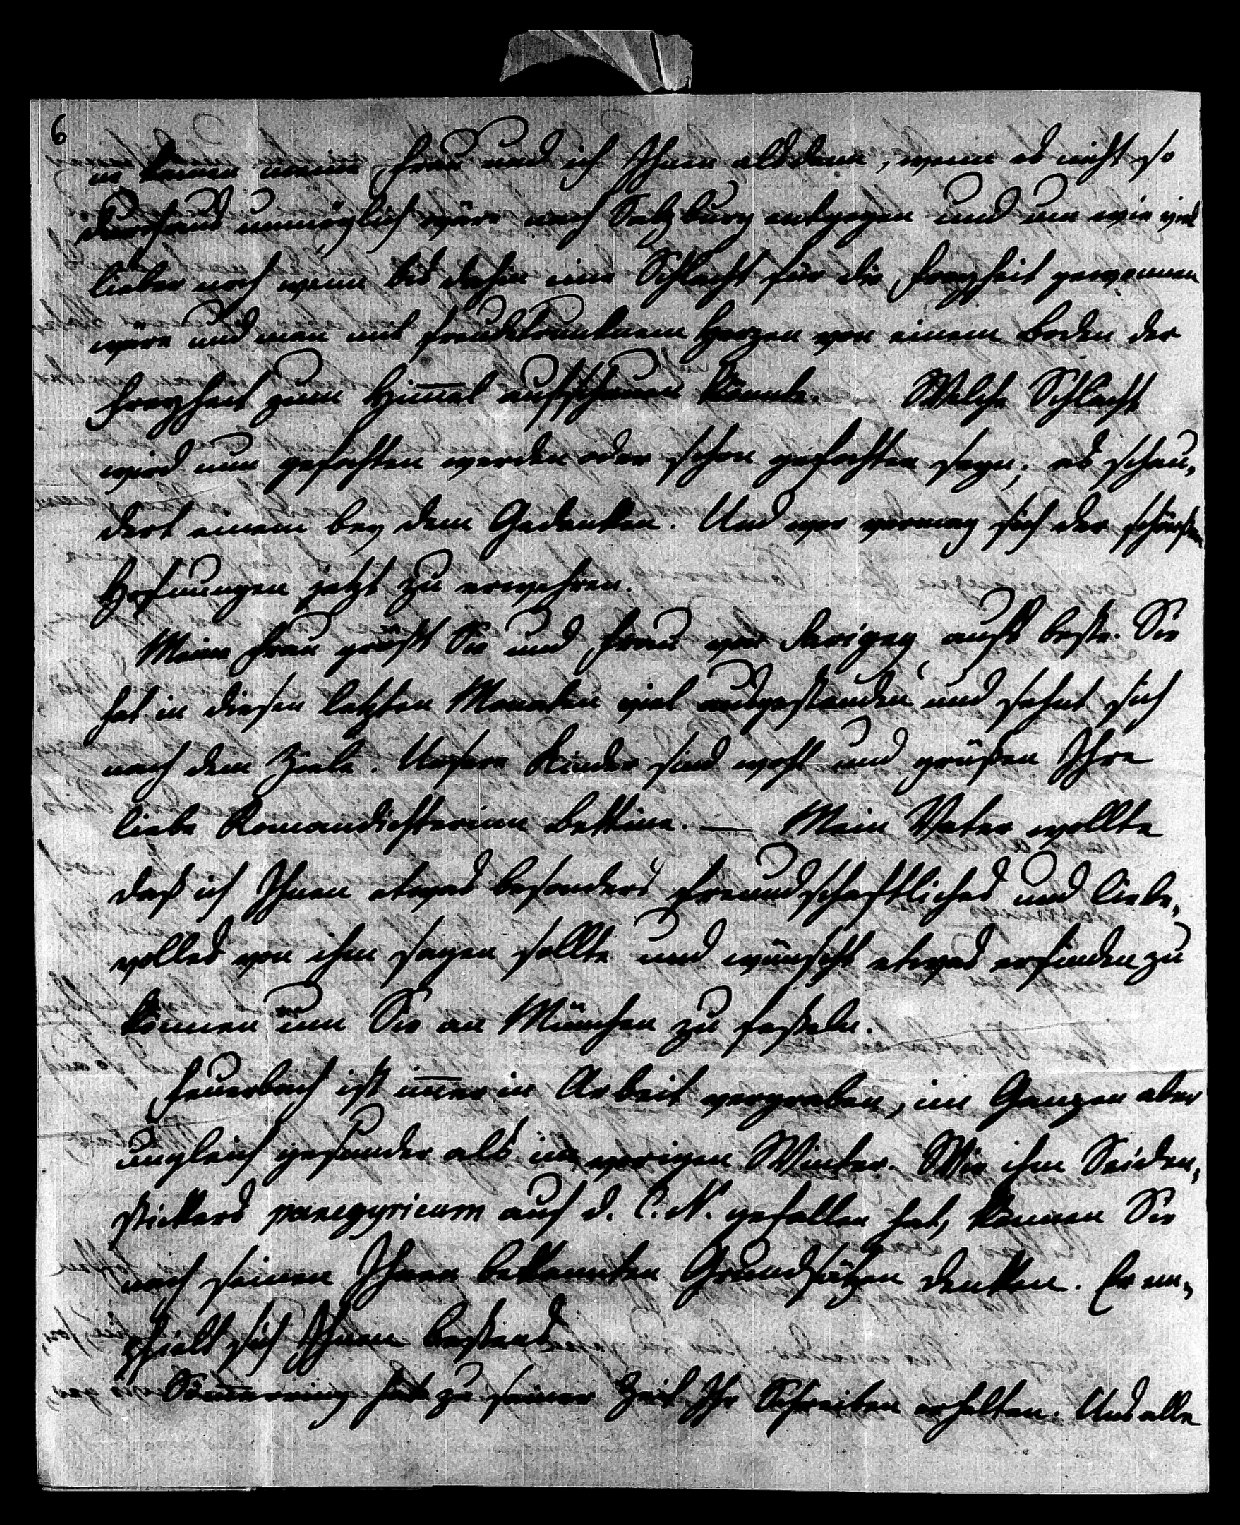 6
kämen meine Frau und ich Ihnen alsdann, wenn es nicht so
durchaus unmöglich wäre nach Salzburg entgegen und um wie viel
lieber noch wenn bis dahin eine Schlacht für die Freyheit gewonnen
wäre und man mit freudetrunkenem Herzen von einem Boden der
Freyheit zum Himmel aufschauen könnte. Welche Schlacht
wird nun gefochten werden oder schon gefochten seyn; es schau,
dert einem bey dem Gedanken. Und wer vermag sich der schönsten
Hofnungen jetzt zu erwehren.
Meine Frau grüßt Sie und Frau von Savigny aufs beste. Sie
hat in diesen letzten Monaten viel ausgestanden und sehnt sich
nach dem Ziele. Unsere Kinder sind wohl und grüßen Ihre
liebe Romandichterinn Bettine. — Mein Vater wollte
daß ich Ihnen etwas besonders freundschaftliches und liebe,
volles von ihm sagen sollte und wünscht etwas erfinden zu
können um Sie an München zu fesseln.
Feuerbach ist immer in Arbeit vergraben, im Ganzen aber
ungleich gesunder als im vorigen Winter. Wie ihm Seiden,
stickers panegyricum auf d. C. N. gefallen hat, können Sie
nach seinen Ihnen bekannten Grundsätzen denken. Er em,
pfielt sich Ihnen bestens.
Sömmerring hat zu seiner Zeit Ihr Schreiben erhalten. Uns alle